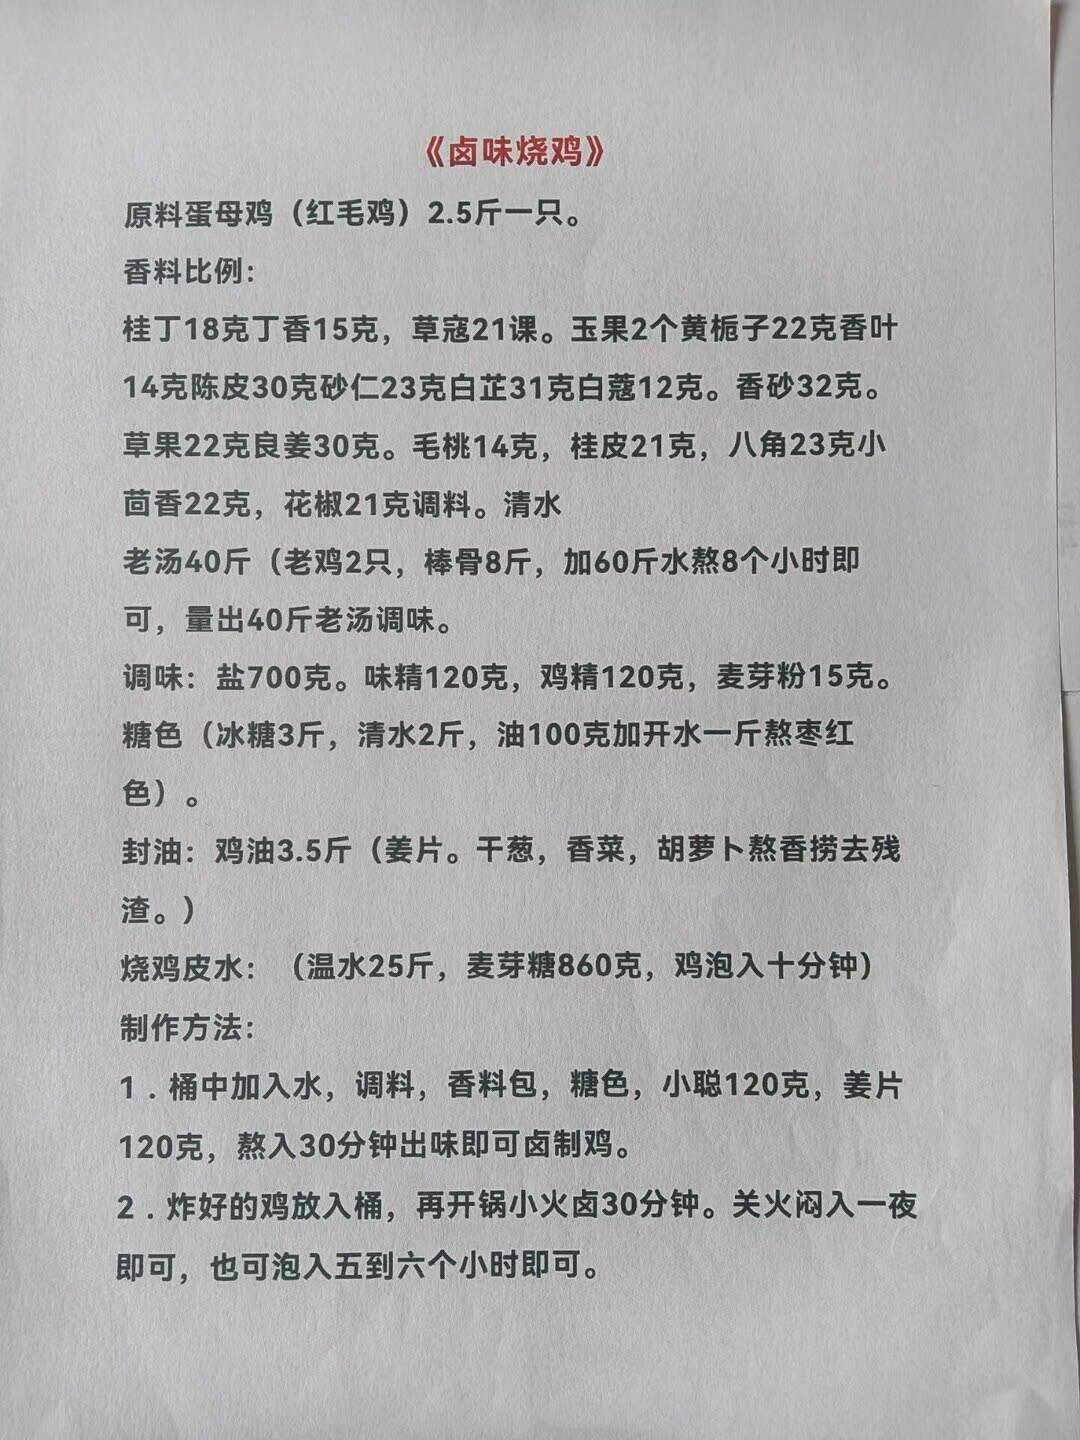 《卤味烧鸡》
原料蛋母鸡（红毛鸡）2.5斤一只。
香料比例：
桂丁18克丁香15克，草寇21课。玉果2个黄栀子22克香叶
14克陈皮30克砂仁23克白芷31克白蔻12克。香砂32克。
草果22克良姜30克。毛桃14克，桂皮21克，八角23克小
茴香22克，花椒21克调料。清水
老汤40斤（老鸡2只，棒骨8斤，加60斤水熬8个小时即
可，量出40斤老汤调味。
调味：盐700克。味精120克，鸡精120克，麦芽粉15克。
糖色（冰糖3斤，清水2斤，油100克加开水一斤熬枣红
色）。
封油：鸡油3.5斤（姜片。干葱，香菜，胡萝卜熬香捞去残
渣。）
烧鸡皮水：（温水25斤，麦芽糖860克，鸡泡入十分钟）
制作方法：
1．桶中加入水，调料，香料包，糖色，小聪120克，姜片
120克，熬入30分钟出味即可卤制鸡。
2．炸好的鸡放入桶，再开锅小火卤30分钟。关火闷入一夜
即可，也可泡入五到六个小时即可。